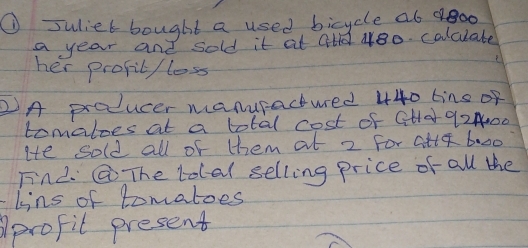 ① Juliet bought a used bicycle at ¢800
a year and sold it at GH¢ 480. calculate
her profit/loss
② A producer manufactured 440 tins of
tomatoes at a total cost of GH¢
He sold all of them at 2 for GH¢
Find: ⓐ The total selling price of all the
tins of tomatoes
profit present